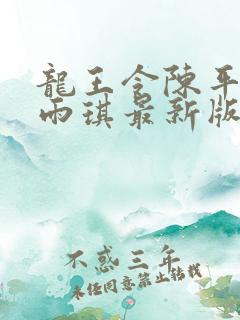 龍王令陳平
雨琪最新版
不惑三年
未经同意禁止转载